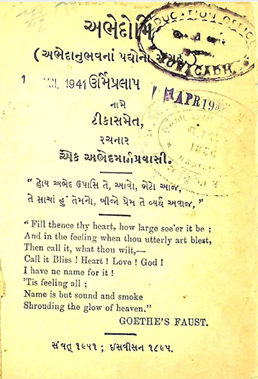 અભેદોર્મિ
( અભેદાનુભવનાં પદ્યોનો
1 1941 ઊર્મિપ્રલાપ
નામે
APR 19
ટીકાસમેત,
રચનાર
એક અભેદમાર્ગપ્રવાસી.
“ હોય અભેદ ઉપાસિ તે, આવો, બેટા આજ,
તે સાચાં હું તેમનો, બીજે પ્રેમ તે વ્યર્થ અવાજ, ”
“ Fill thence thy heart, how large soe'er it be ;
And in the feeling when thou utterly art blest,
Then call it, what thou wilt,—
Call it Bliss ! Heart ! Love ! God !
I have no name for it !
'Tis feeling all ;
Name is but sound and smoke
Shrouding the glow of heaven.”
GOETHE'S FAUST.
સંવત્ ૧૯૫૧ ; ઇસવીસન ૧૮૯૫.